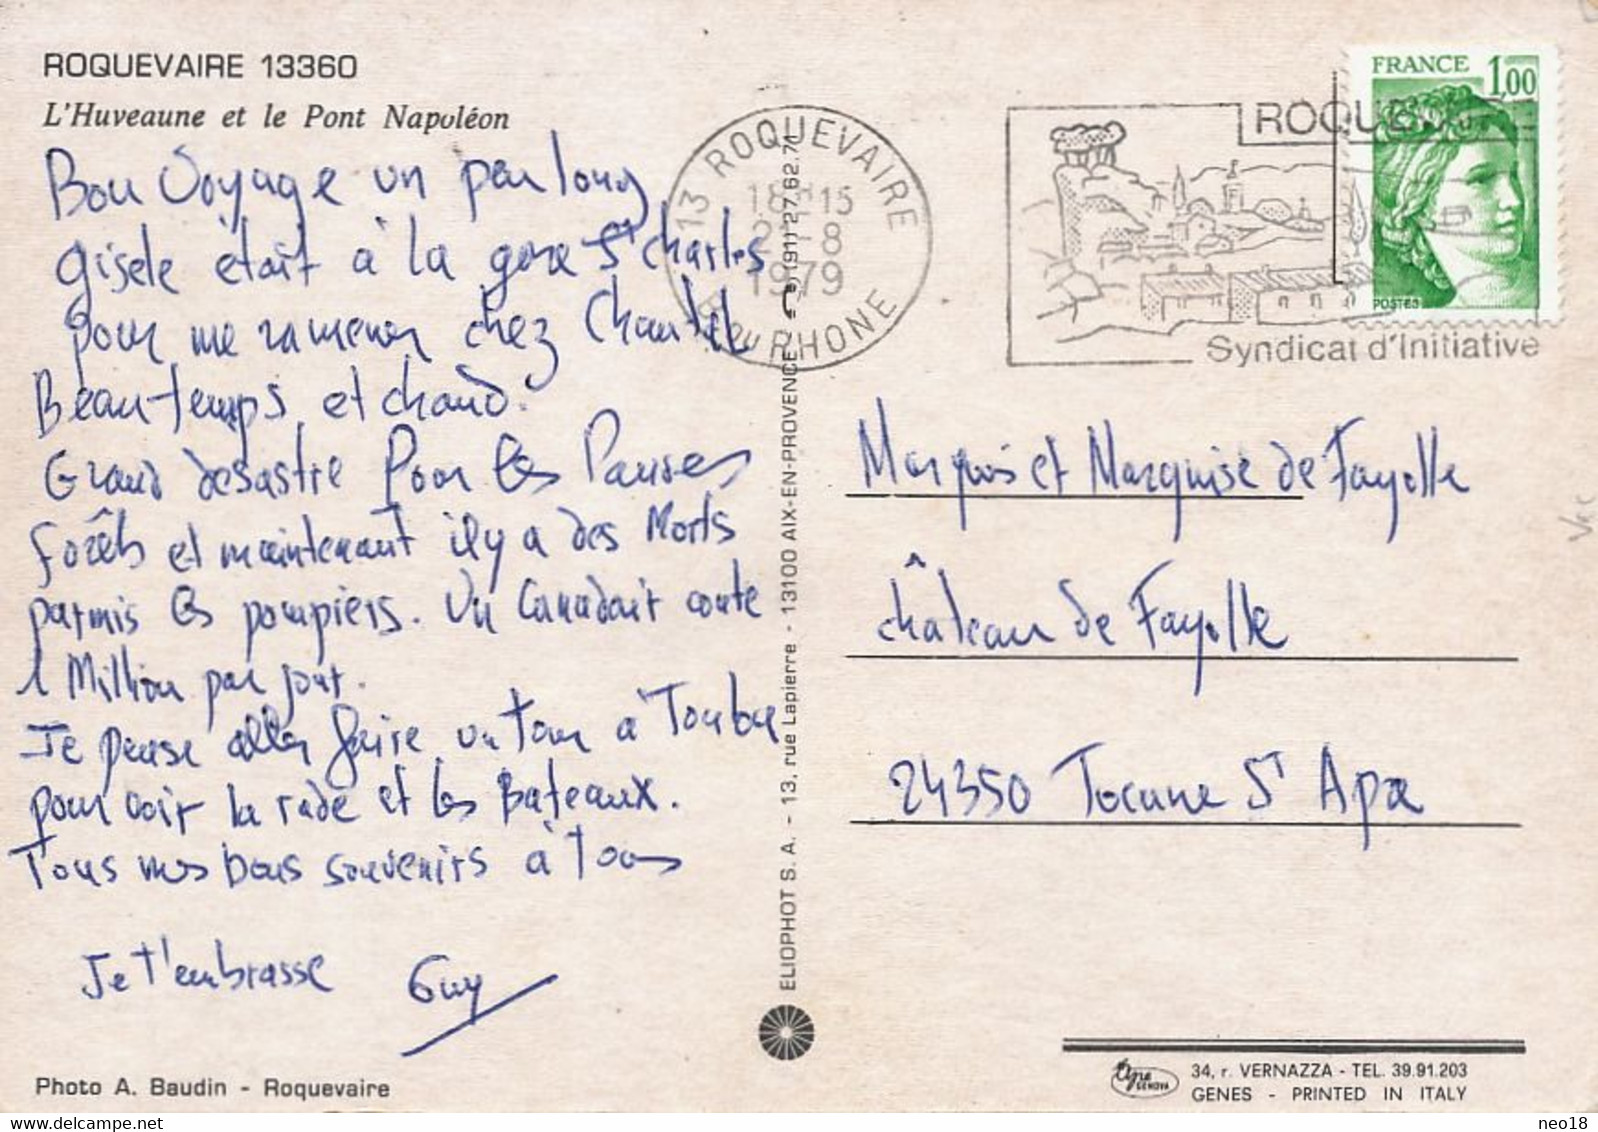 ROQUEVAIRE 13360
L'Huveaune et le Pont Napoléon
Bon Voyage un peu long
Gisele était à la gare St charles
pour me ramener chez Chantal
Beau temps et chaud.
Grand désastre Pour les Pauvres
forêts et maintenant il y a des Morts
parmis les pompiers. Un Canadair coute
1 Million par jour.
Je pense aller faire un tour à Toulon
pour voir la rade et les Bateaux.
Tous mes bons souvenirs à Tous
Je t'embrasse Guy
Photo A. Baudin - Roquevaire
13 ROQUEVAIRE
18H15
8
1979
B. DU RHONE
ELIOPHOT S. A. - 13, rue Lapierre - 13100 AIX-EN-PROVENCE - (91) 27.62.71
Syndicat d'Initiative
FRANCE 1,00
POSTES
Marquis et Marquise de Fayolle
château de Fayolle
24350 Tocane St Apre
34, r. VERNAZZA - TEL. 39.91.203
GENES - PRINTED IN ITALY
www.delcampe.net
neo18